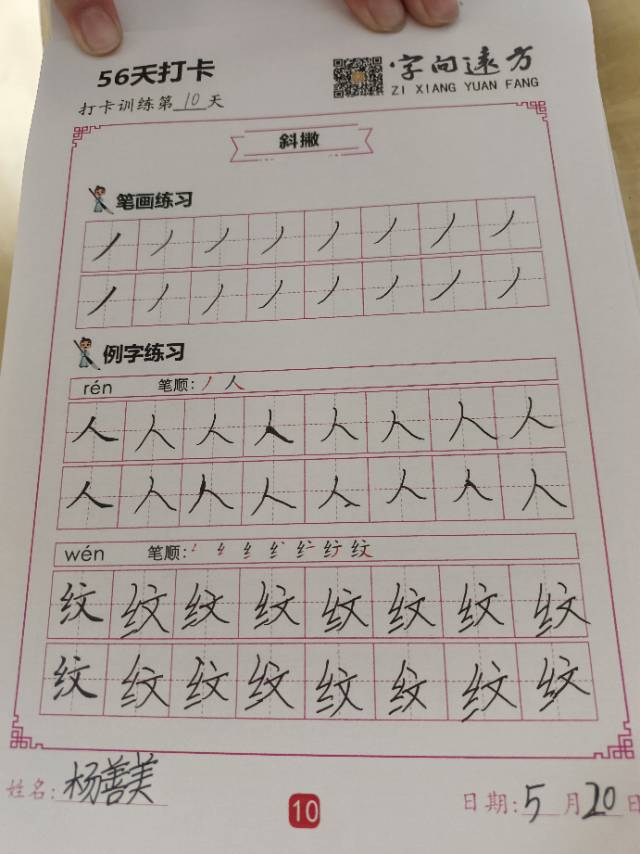 56天打卡
字向遠方
ZI XIANG YUAN FANG
打卡训练第10天
斜撇
笔画练习
丿丿丿丿丿丿丿丿
丿丿丿丿丿丿丿丿
例字练习
rén 笔顺: 丿 人
人人人人人人人人
人人人人人人人人
wén 笔顺:
纹纹纹纹纹纹纹纹
纹纹纹纹纹纹纹纹
姓名: 杨善美
10
日期: 5月20日